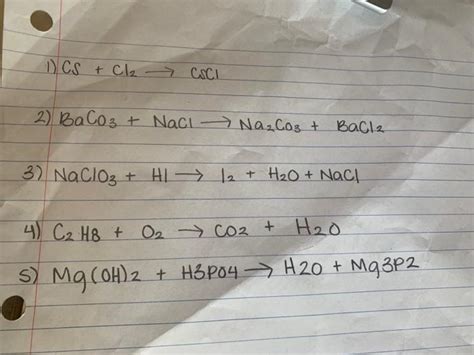 1) CS + Cl2 → CSCl
2) BaCO3 + NaCl → Na2CO3 + BaCl2
3) NaClO3 + HI → I2 + H2O + NaCl
4) C2H8 + O2 → CO2 + H2O
5) Mg(OH)2 + H3PO4 → H2O + Mg3P2